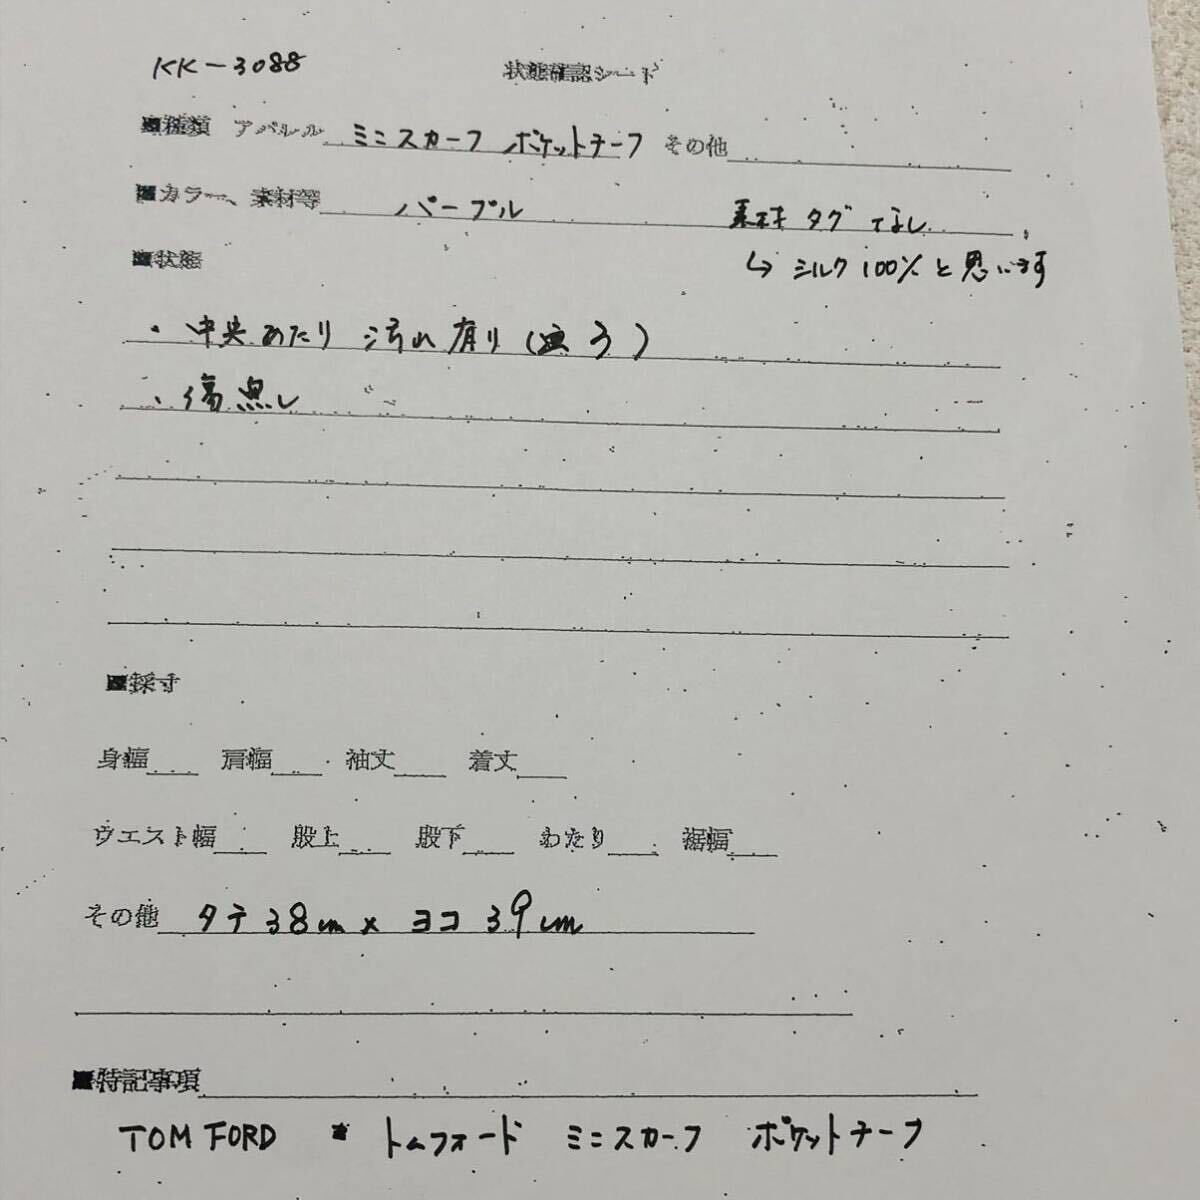 KK-3088
状態確認シート
■種類 アパレル ミニスカーフ ポケットチーフ その他
■カラー、素材等 パープル 素材タグなし
■状態 ↳ シルク100%と思います
・中央あたり汚れ有り( 3)
・傷無し
■採寸
身幅 肩幅 袖丈 着丈
ウエスト幅 股上 股下 わたり 裾幅
その他 タテ38cm×ヨコ39cm
■特記事項
TOM FORD トムフォード ミニスカーフ ポケットチーフ